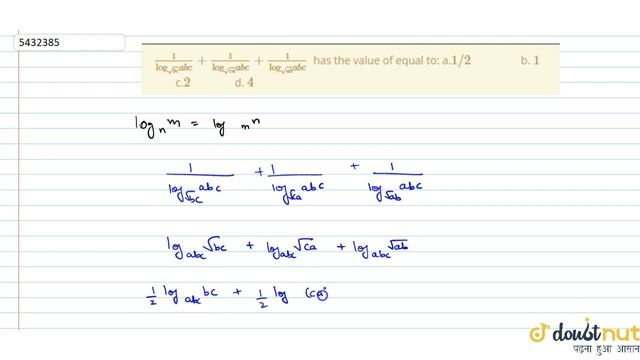 5432385
1/log_√bc abc + 1/log_√ca abc + 1/log_√ab abc has the value of equal to: a.1/2 b. 1
c.2 d. 4
log_n m = log m^n
1/log_√bc abc + 1/log_√ca abc + 1/log_√ab abc
log_abc √bc + log_abc √ca + log_abc √ab
1/2 log_abc bc + 1/2 log (ca)
doubtnut
पढ़ना हुआ आसान